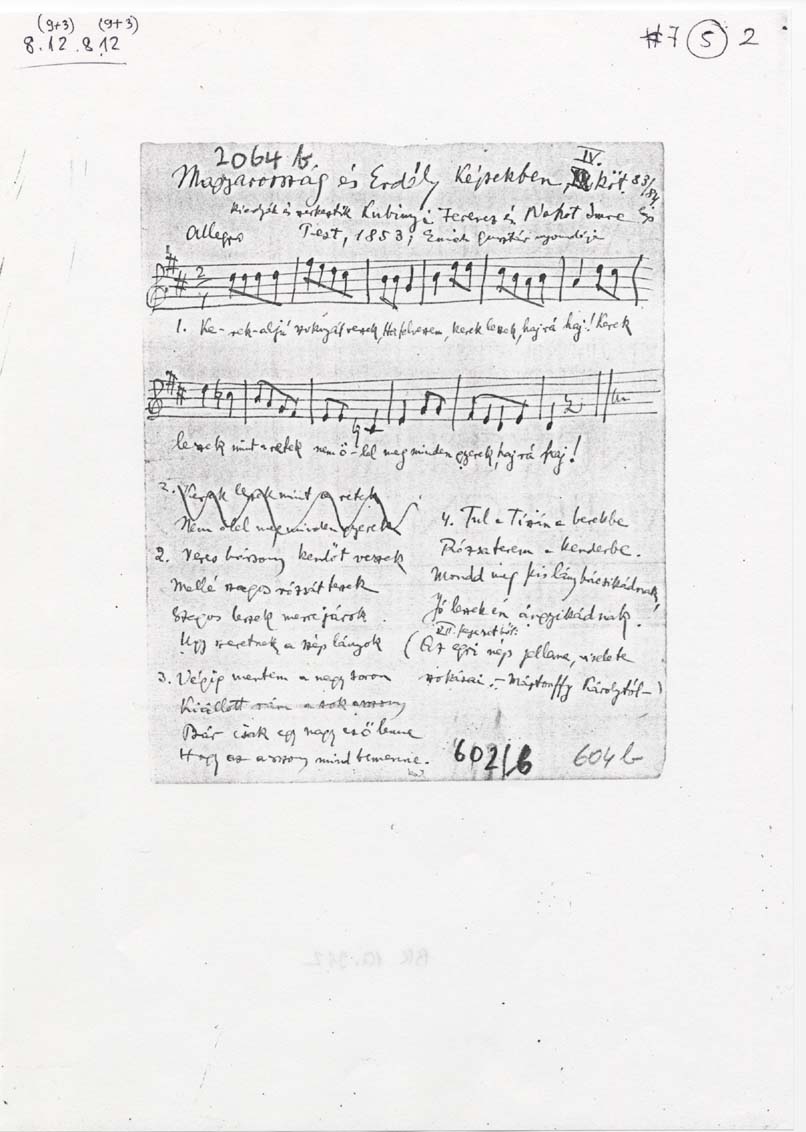 (9+3) (9+3)
8.12.8.12
#7 5 2
2064 b.
IV.
Magyarország és Erdély Képekben, köt. 83/84.
Kiadják és szerkesztik Kubinyi Ferencz és Vahot Imre
Allegro
Pest, 1853; Emich Gusztáv nyomdája
2
4
1. Ke-rek-aljú szoknyát veszek, Ha felveszem, kerek leszek, hajrá haj! Kerek
leszek mint a retek nem ö-lel meg minden gyerek, hajrá haj!
2. Kerek leszek mint a retek
Nem ölel meg minden gyerek
2. Veres bársony kendőt veszek
Mellé szegős rózsát teszek
Szegős leszek merre járok
Ugy szeretnek a szép lányok
3. Végig mentem a nagy soron
Kiállott rám a sok asszony
Bár csak egy nagy eső lenne
Hogy az asszony mind bemenne.
4. Tul a Tiszán a berekbe
Rózsa terem a kenderbe.
Mondd meg kislány bácsikádnak
Jó leszek én ángyikádnak.
(Az egri nép jelleme, viselete
szokásai. – Mártonffy Károlytól –)
602/b
604 b